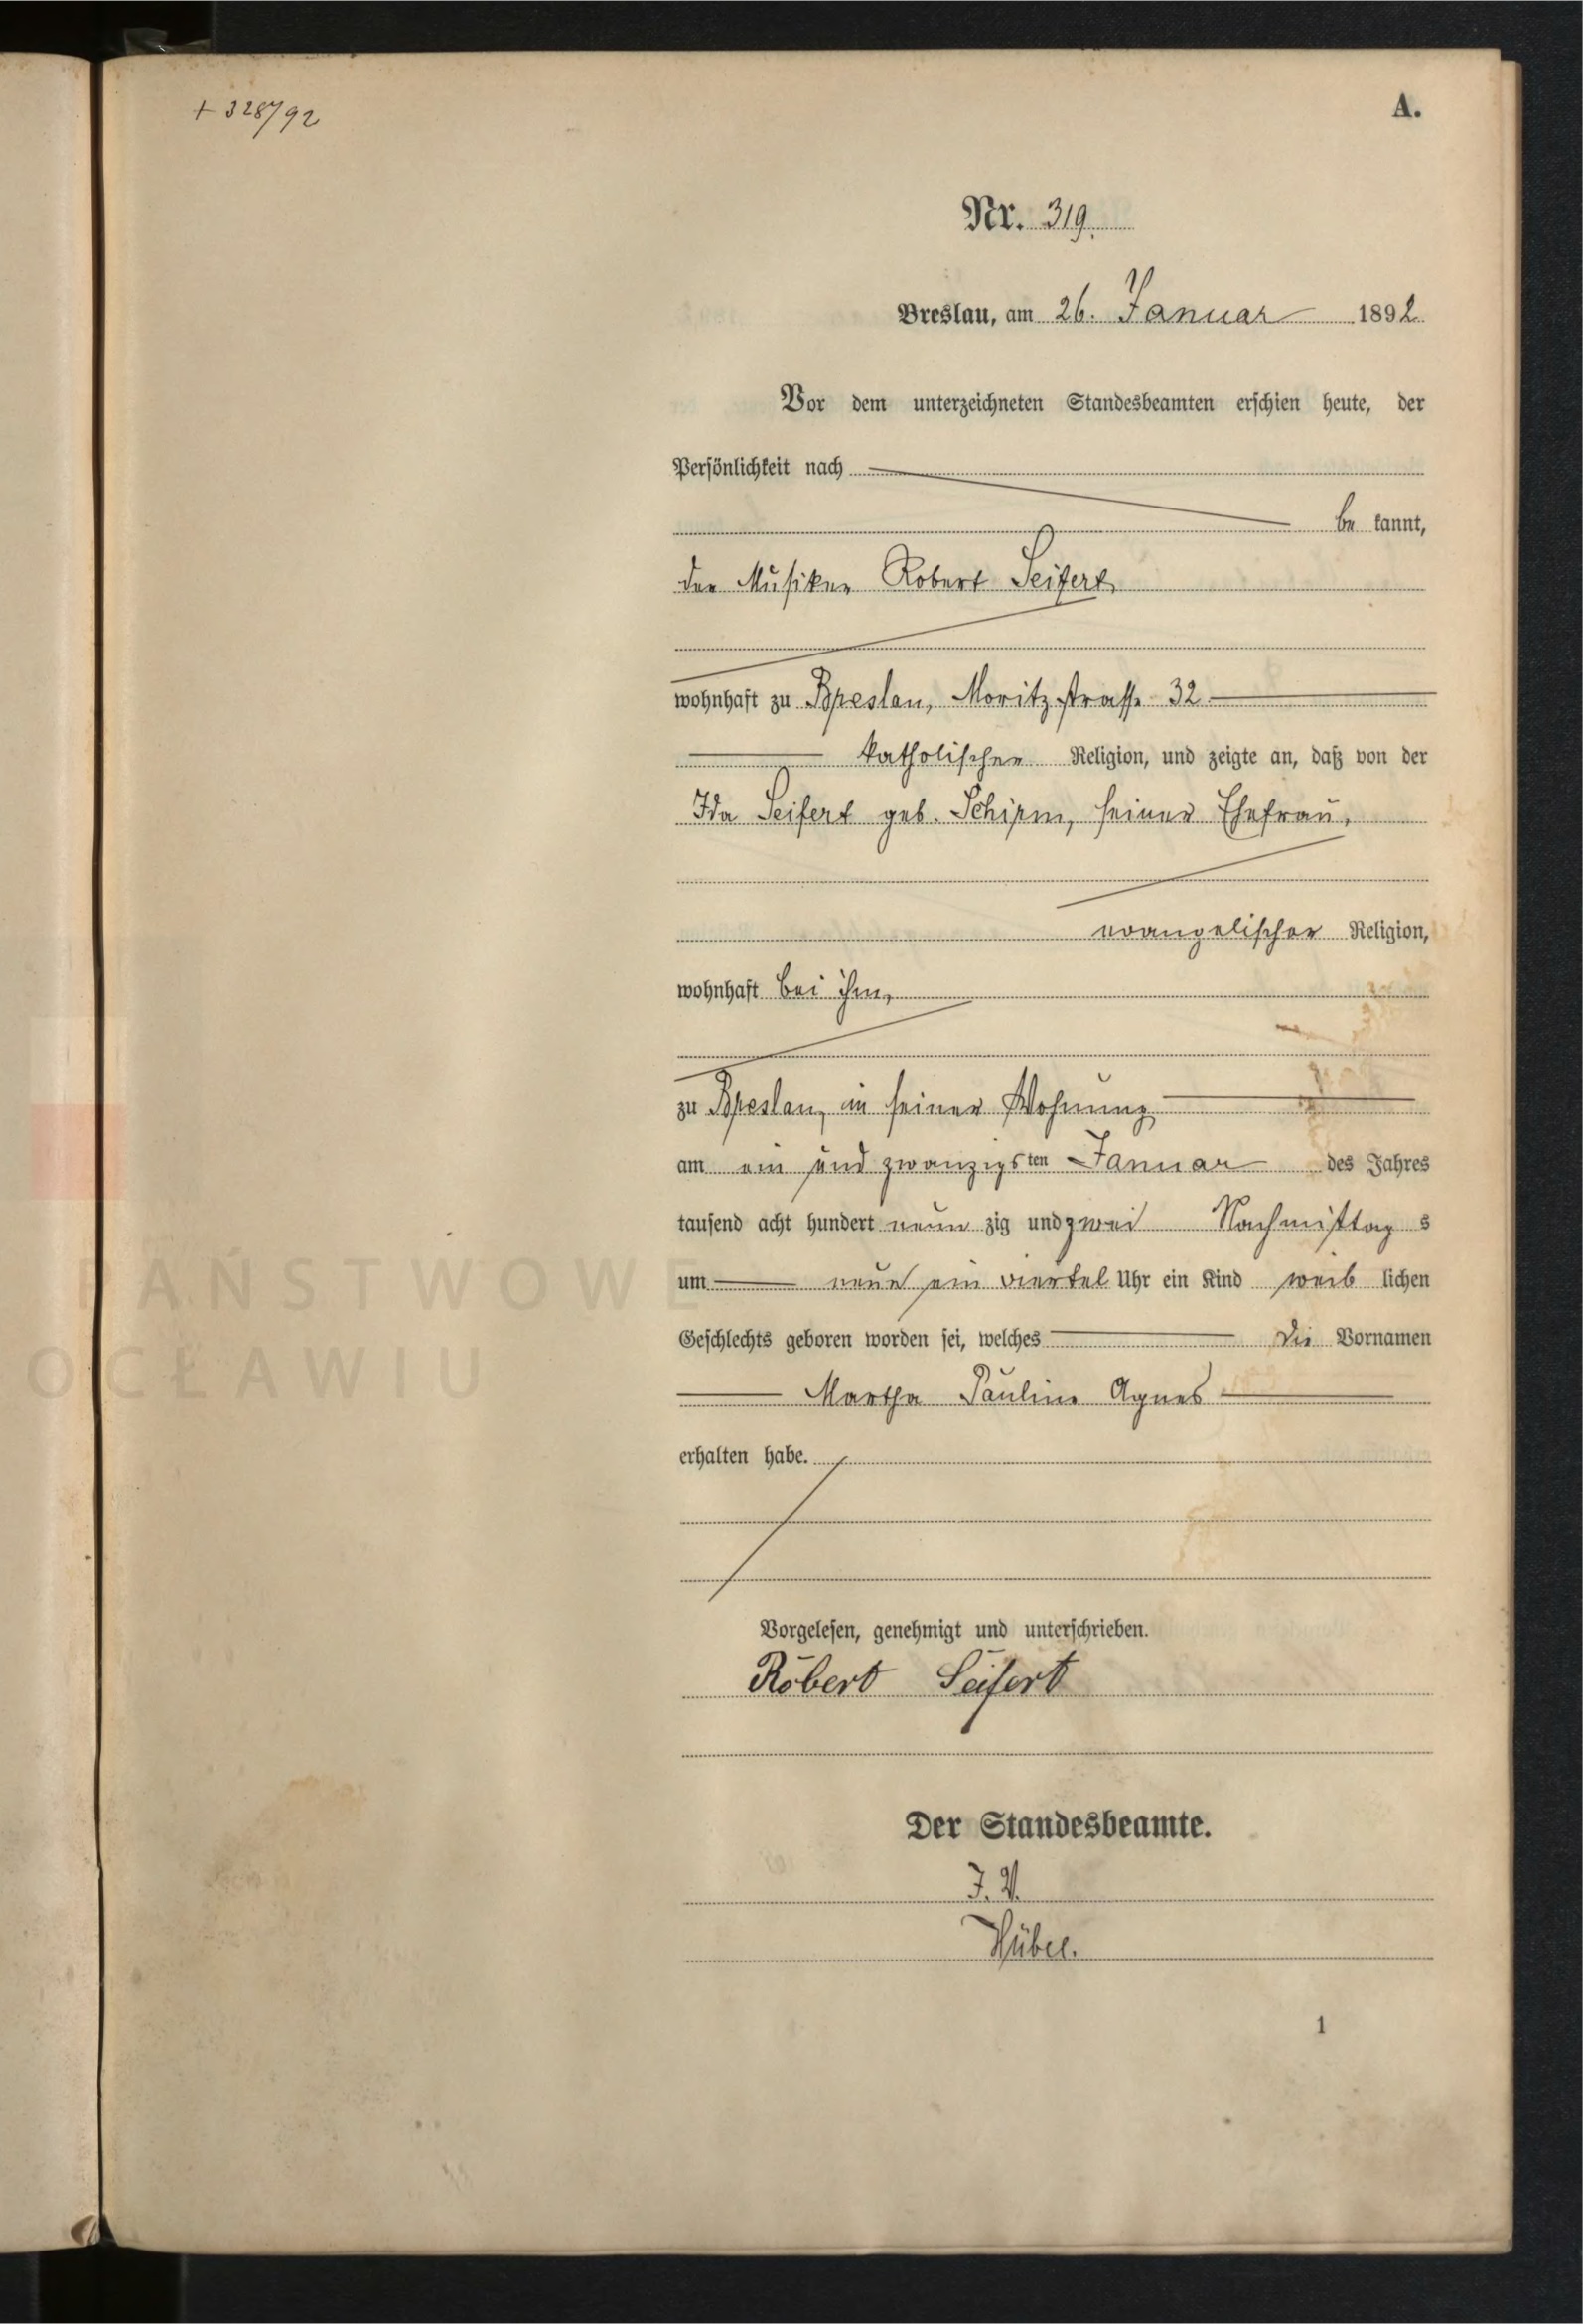 + 328/92
A.
Nr. 319.
Breslau, am 26. Januar 1892.
Vor dem unterzeichneten Standesbeamten erschien heute, der
Persönlichkeit nach
be kannt,
der Musiker Robert Seifert,
wohnhaft zu Breslau, Moritzstrasse 32
katholischer Religion, und zeigte an, daß von der
Ida Seifert geb. Schirm, seiner Ehefrau,
evangelischer Religion,
wohnhaft bei ihm,
zu Breslau, in seiner Wohnung
am ein und zwanzigsten Januar des Jahres
tausend acht hundert neun zig und zwei Nachmittag s
um neun ein viertel Uhr ein Kind weib lichen
Geschlechts geboren worden sei, welches die Vornamen
Martha Pauline Agnes
erhalten habe.
Vorgelesen, genehmigt und unterschrieben.
Robert Seifert
Der Standesbeamte.
J. V.
1
PAŃSTWOWE
OCŁAWIU